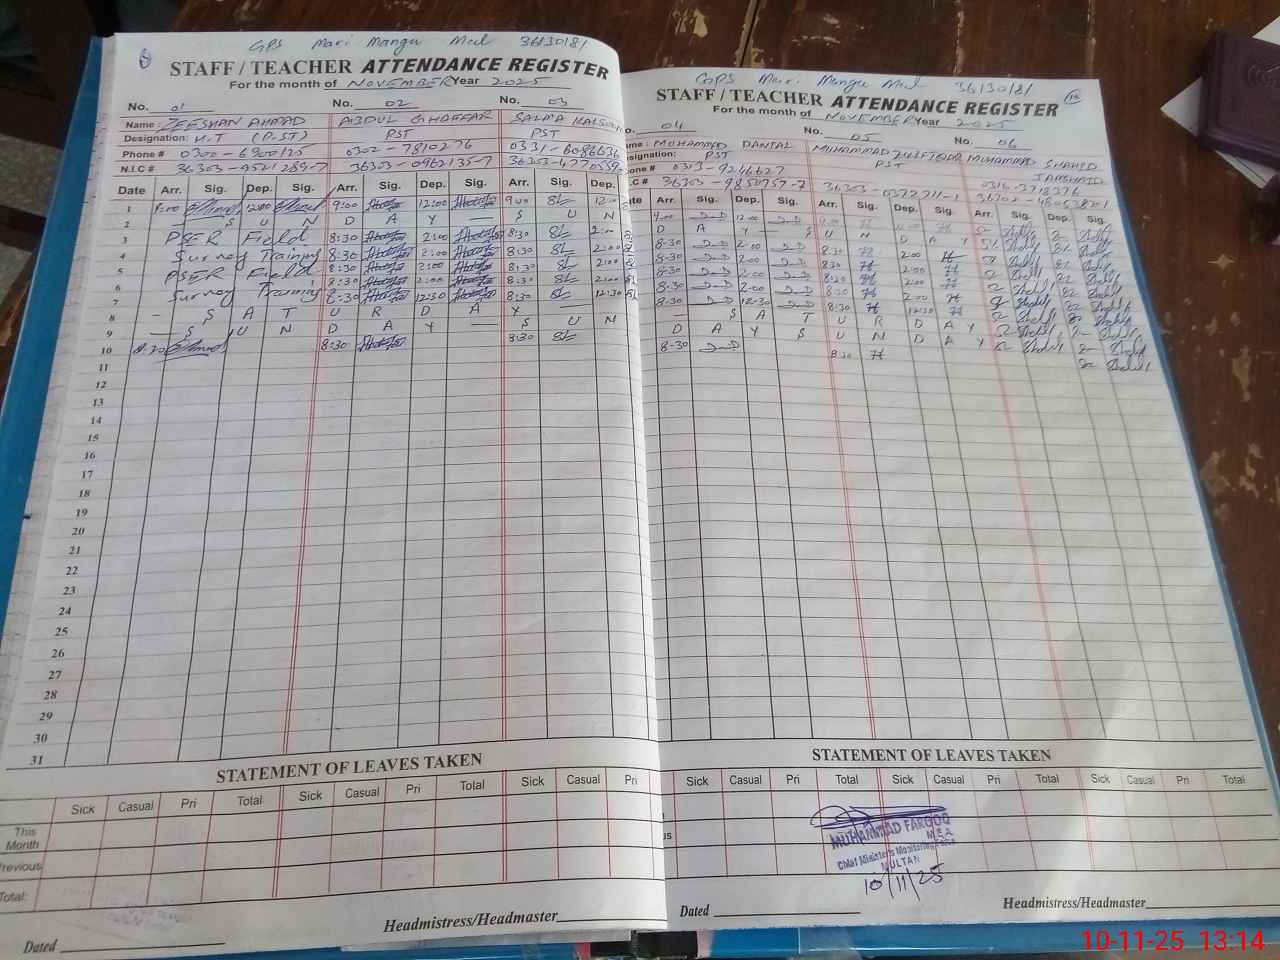 GPS Mari Mangu Mal 36130181
STAFF / TEACHER ATTENDANCE REGISTER
For the month of NOVEMBER Year 2025
No. 01 No. 02 No. 03
Name: ZEESHAN AHMAD ABDUL GHAFFAR SALMA KALSOOM
Designation: H.T (P.ST) PST PST
Phone # 0300-6900125 0302-7810276 0331-6086636
N.I.C # 36303-9521289-7 36303-0962135-7
Date Arr. Sig. Dep. Sig. Arr. Sig. Dep. Sig. Arr. Sig. Dep.
1 9:00 12:00 9:00 12:00 9:00 SL 12:00
2 — S U N D A Y S U N
3 PSER Field 8:30 2:00 8:30 SL 2:00
4 Survey Training 8:30 2:00 8:30 SL 2:00
5 PSER Field 8:30 2:00 8:30 SL 2:00
6 Survey Training 8:30 2:00 8:30 SL 2:00
7 8:30 12:30 8:30 SL 12:30
8 — S A T U R D A Y
9 — S U N D A Y — S U N
10 8:30 8:30 8:30 SL
11
12
13
14
15
16
17
18
19
20
21
22
23
24
25
26
27
28
29
30
31
STATEMENT OF LEAVES TAKEN
Sick Casual Pri Total Sick Casual Pri Total Sick Casual Pri
This Month
Previous
Total:
Headmistress/Headmaster
Dated
GPS Mari Mangu Mal 36130181
STAFF / TEACHER ATTENDANCE REGISTER
For the month of NOVEMBER Year 2025
No. 04 No. 05 No. 06
Name: MUHAMMAD DANYAL MUHAMMAD ZULFIQAR MUHAMMAD SHAHID JAMSHAID
Designation: PST PST
Phone # 0303-9246627 0316-3718376
36303-9850757-7 36303-0372711-1
Arr. Sig. Dep. Sig. Arr. Sig. Dep. Sig. Arr. Sig. Dep. Sig.
9:00 12:00
D A Y — S U N D A Y
8:30 2:00 8:30 2:00
8:30 2:00 8:30 2:00
8:30 2:00 8:30 2:00
8:30 2:00 8:30 2:00
8:30 12:30 8:30 12:30
— S A T U R D A Y
D A Y S U N D A Y
8:30 8:30
STATEMENT OF LEAVES TAKEN
Sick Casual Pri Total Sick Casual Pri Total Sick Casual Pri Total
MUHAMMAD FAROOQ
M E A
Chief Minister's Monitoring Force
MULTAN
10/11/25
Dated
Headmistress/Headmaster
10-11-25 13:14